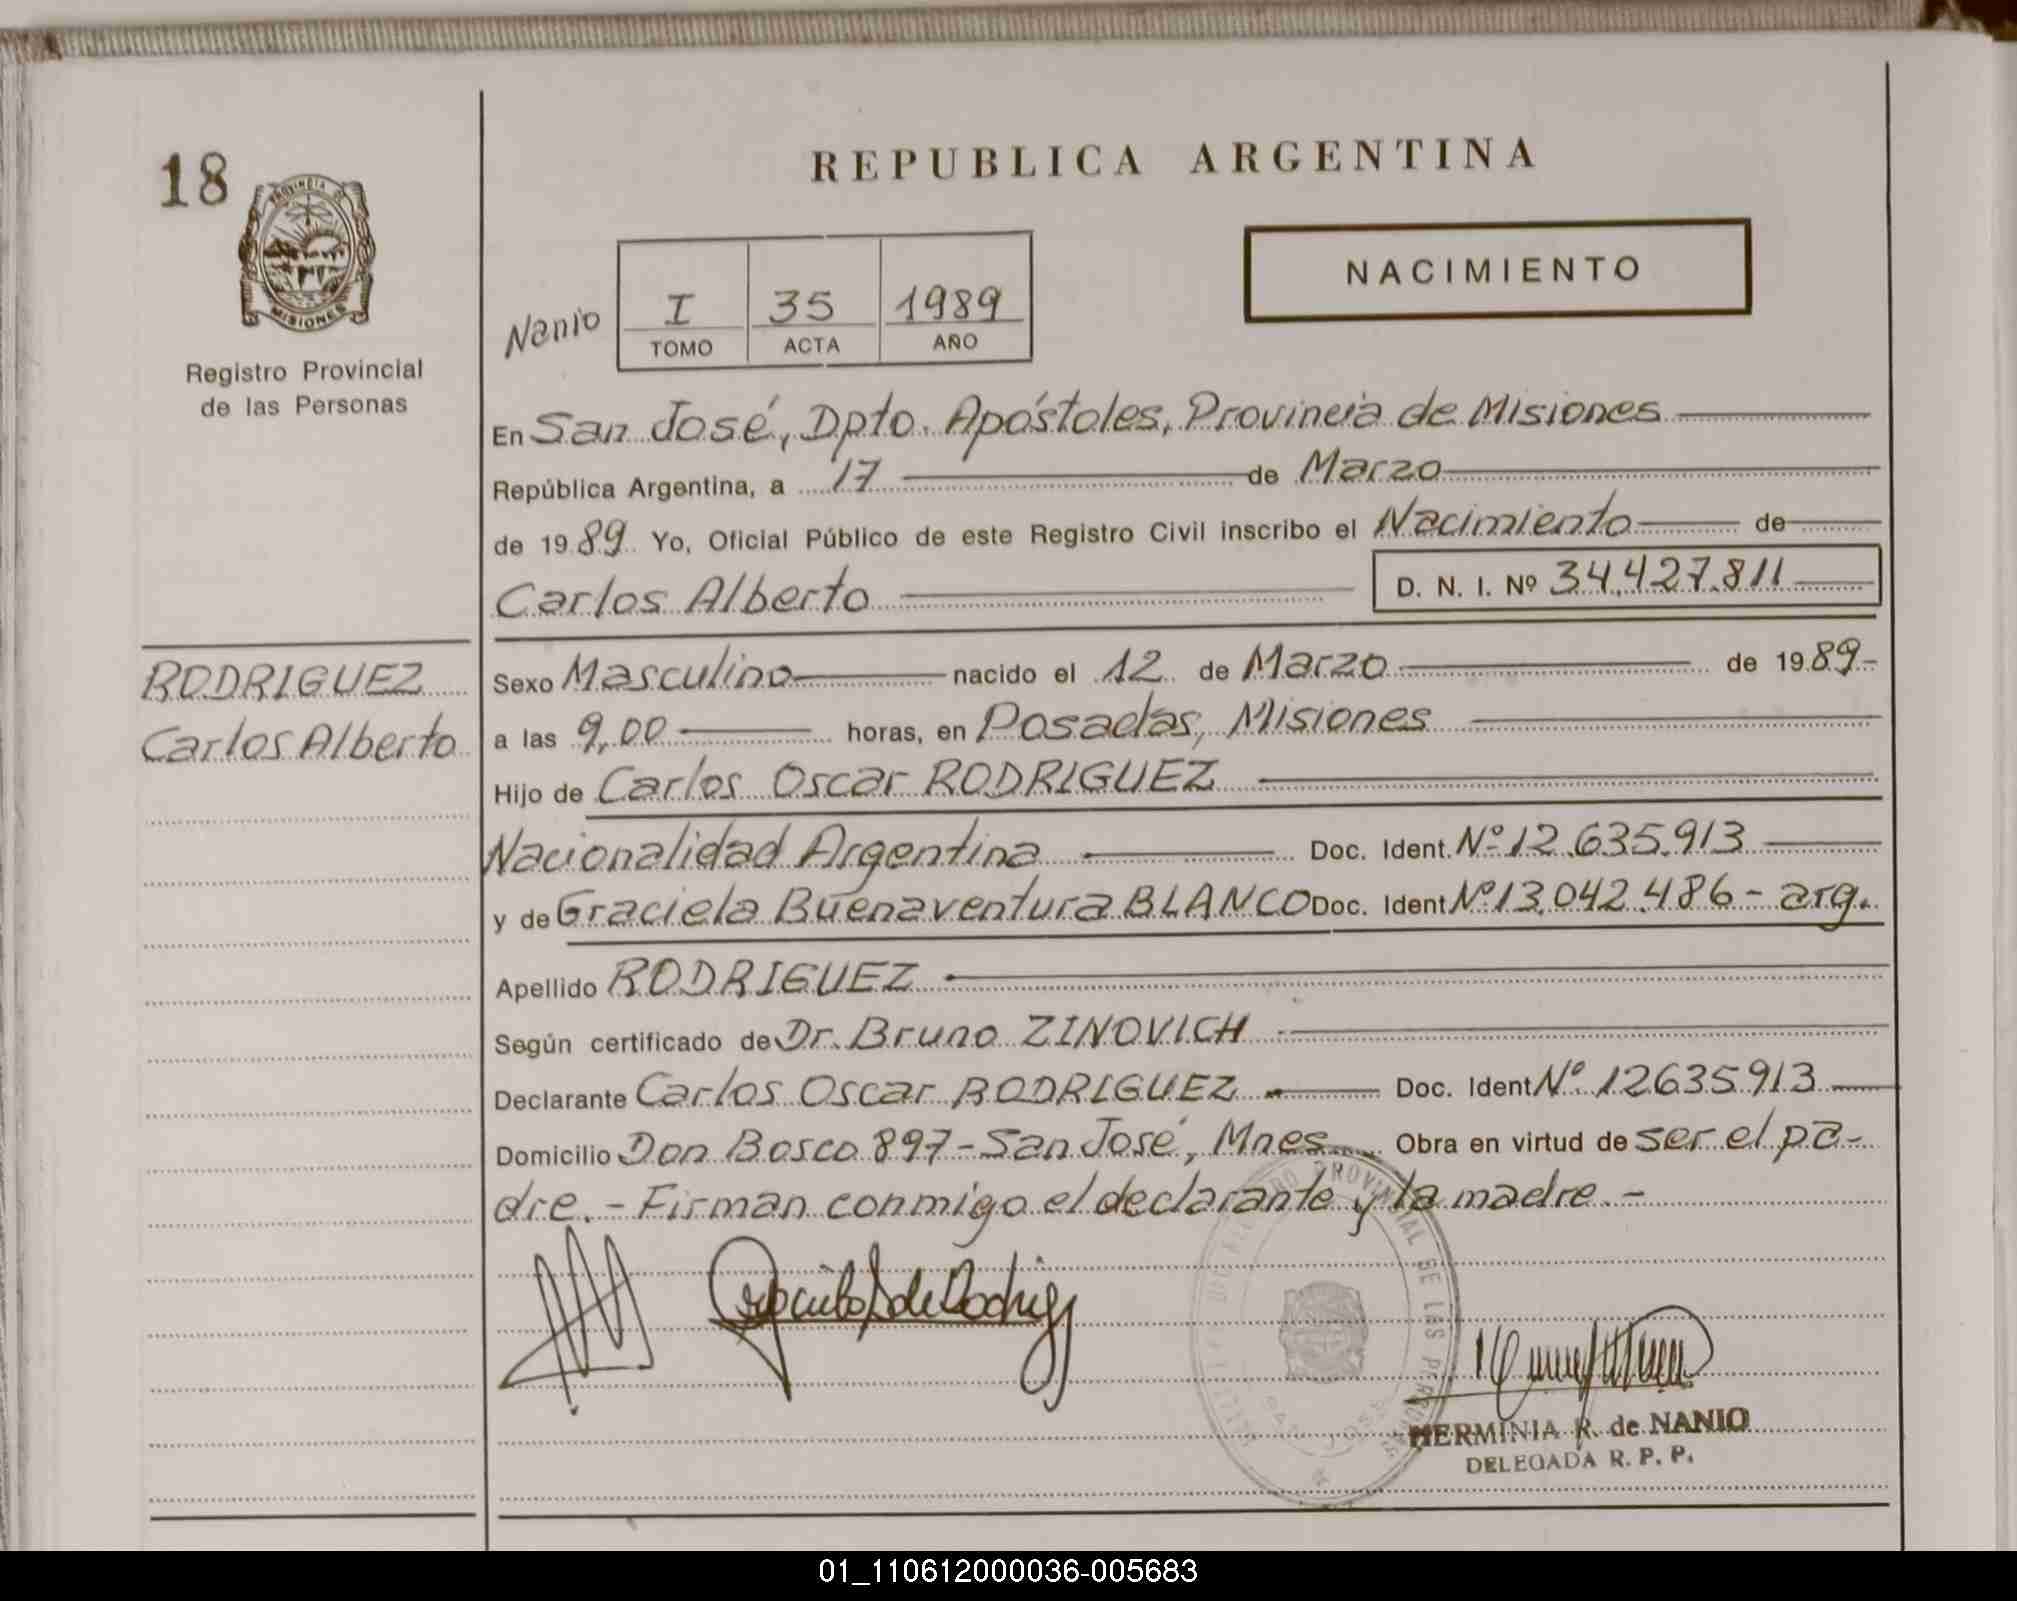 18
PROVINCIA DE
MISIONES
Registro Provincial
de las Personas
RODRIGUEZ
Carlos Alberto
REPUBLICA ARGENTINA
NACIMIENTO
Nanio
I 35 1989
TOMO ACTA AÑO
En San José, Dpto. Apóstoles, Provincia de Misiones
República Argentina, a 17 de Marzo
de 1989 Yo, Oficial Público de este Registro Civil inscribo el Nacimiento de
Carlos Alberto D. N. I. Nº 34.427.811
Sexo Masculino nacido el 12 de Marzo de 1989-
a las 9,00 horas, en Posadas, Misiones
Hijo de Carlos Oscar RODRIGUEZ
Nacionalidad Argentina Doc. Ident. Nº 12.635.913
y de Graciela Buenaventura BLANCO Doc. Ident Nº 13.042.486 - arg.
Apellido RODRIGUEZ
Según certificado de Dr. Bruno ZINOVICH
Declarante Carlos Oscar RODRIGUEZ Doc. Ident Nº 12635913
Domicilio Don Bosco 897 - San José, Mnes. Obra en virtud de ser el pa-
dre. - Firman conmigo el declarante y la madre. -
PROVINCIAL DE LAS PERSONAS
SAN JOSE
HERMINIA R. de NANIO
DELEGADA R. P. P.
01_110612000036-005683